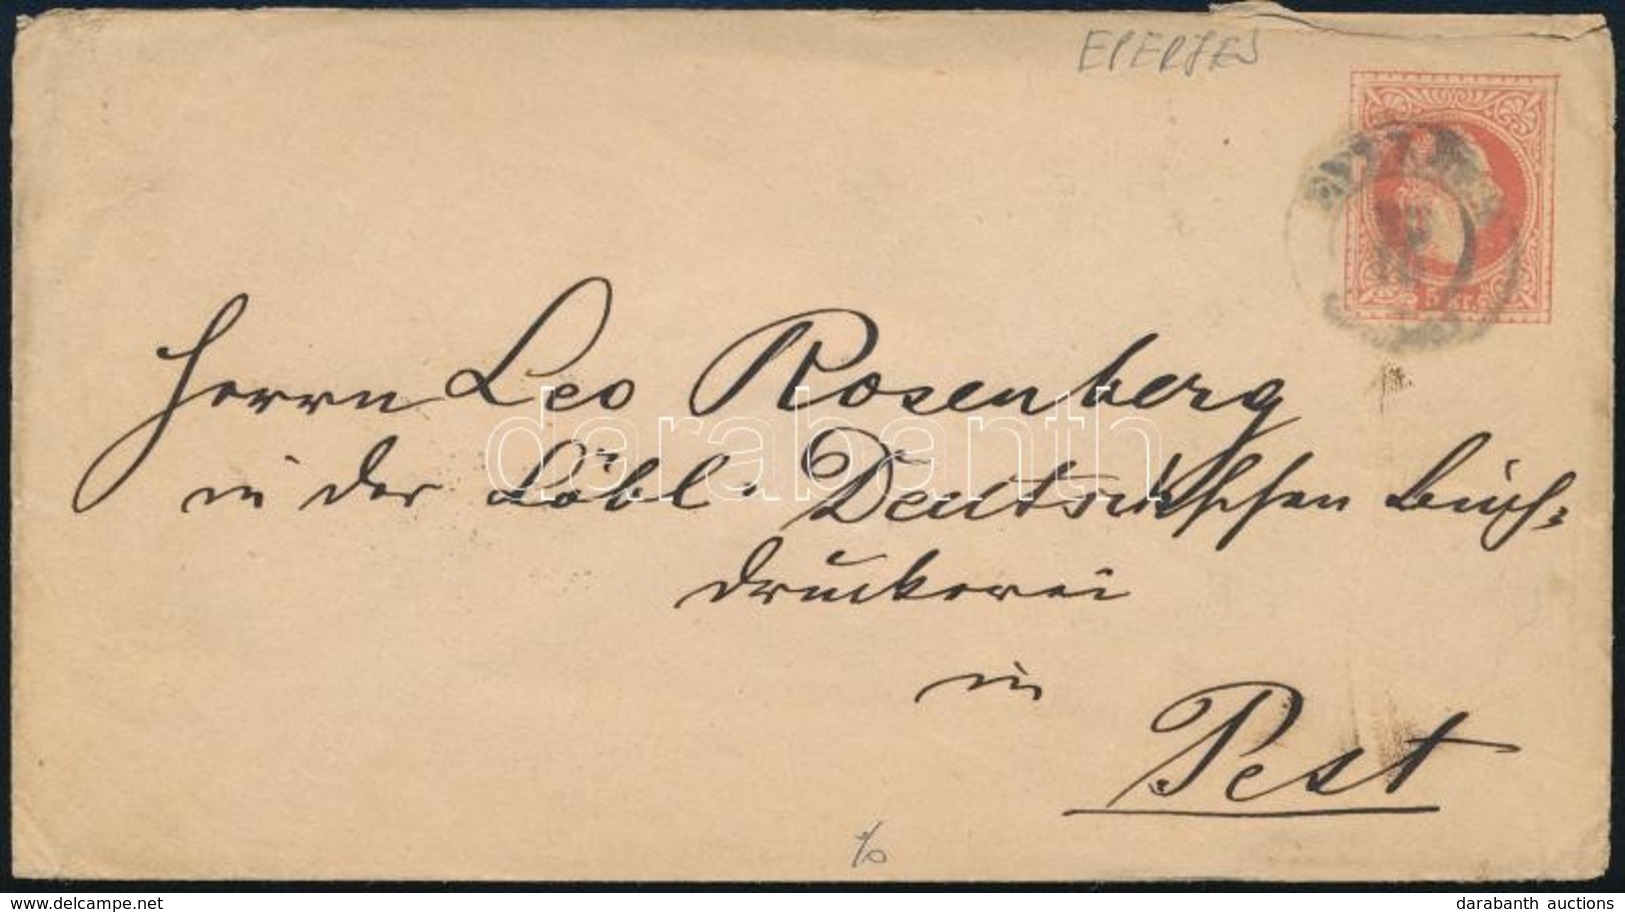 EPERJES
5 kr.
Herrn Leo Rosenberg
in der Löbl. Deutsch'schen Buch-
druckerei
in
Pest
darabanth
livemaster.com
darabanth auctions